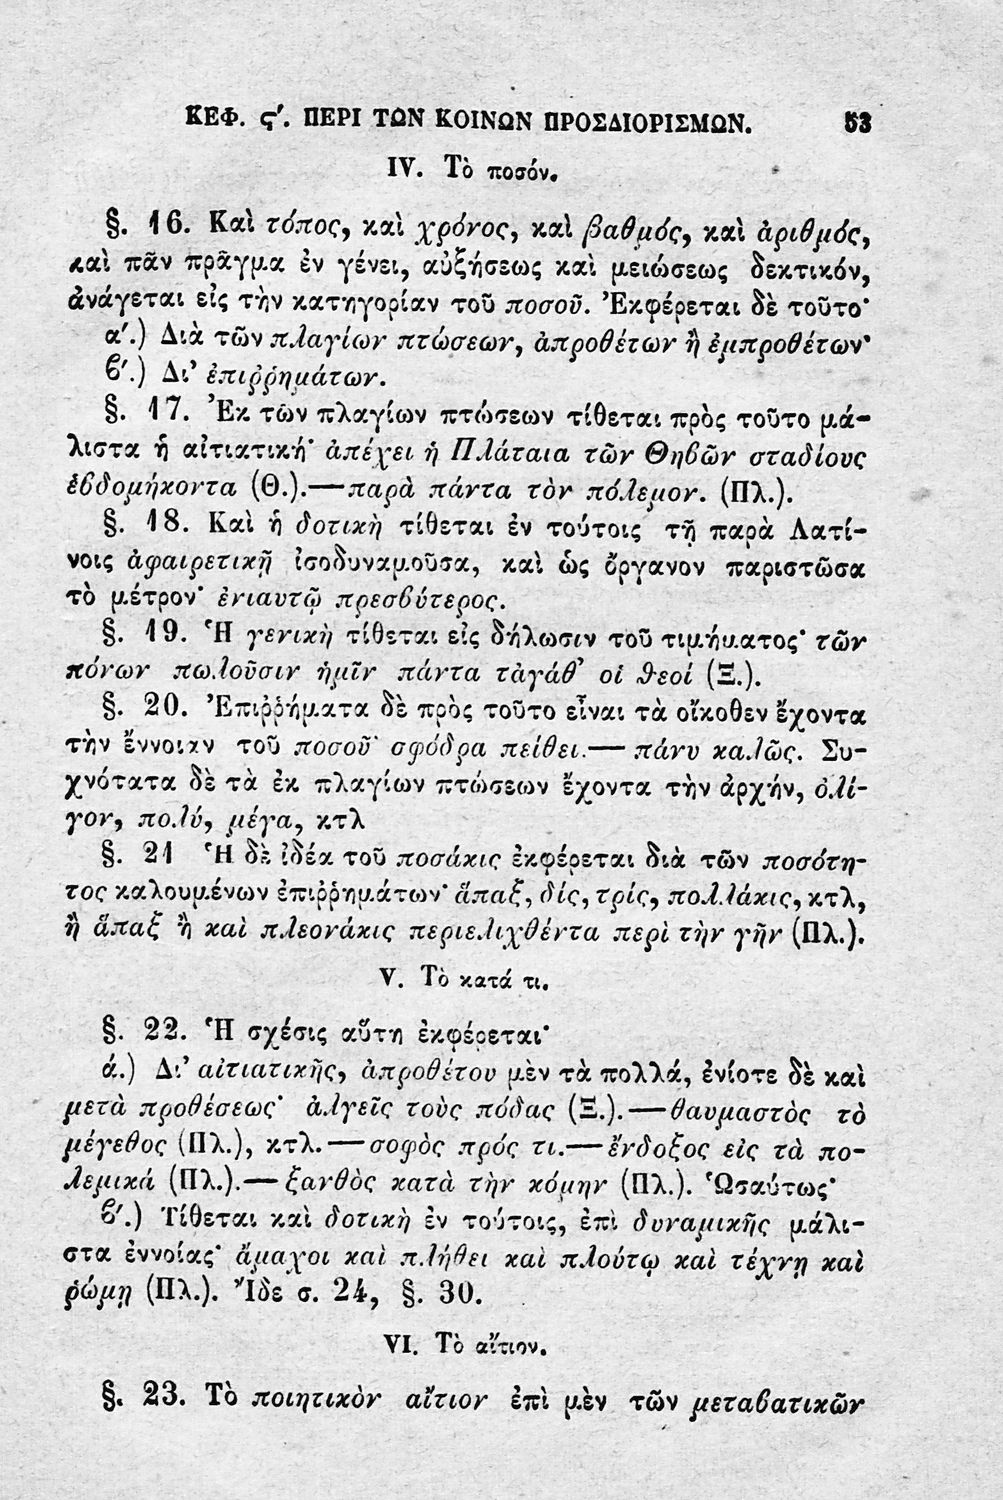 ΚΕΦ. ς΄. ΠΕΡΙ ΤΩΝ ΚΟΙΝΩΝ ΠΡΟΣΔΙΟΡΙΣΜΩΝ. 53
IV. Τὸ ποσόν.
§. 16. Καὶ τόπος, καὶ χρόνος, καὶ βαθμός, καὶ ἀριθμός,
καὶ πᾶν πρᾶγμα ἐν γένει, αὐξήσεως καὶ μειώσεως δεκτικόν,
ἀνάγεται εἰς τὴν κατηγορίαν τοῦ ποσοῦ. Ἐκφέρεται δὲ τοῦτο·
α΄.) Διὰ τῶν πλαγίων πτώσεων, ἀπροθέτων ἢ ἐμπροθέτων·
ϐ΄.) Δι᾽ ἐπιῤῥημάτων.
§. 17. Ἐκ τῶν πλαγίων πτώσεων τίθεται πρὸς τοῦτο μά-
λιστα ἡ αἰτιατική· ἀπέχει ἡ Πλάταια τῶν Θηβῶν σταδίους
ἑϐδομήκοντα (Θ.).—παρὰ πάντα τὸν πόλεμον. (Πλ.).
§. 18. Καὶ ἡ δοτικὴ τίθεται ἐν τούτοις τῇ παρὰ Λατί-
νοις ἀφαιρετικῇ ἰσοδυναμοῦσα, καὶ ὡς ὄργανον παριστῶσα
τὸ μέτρον· ἐνιαυτῷ πρεσϐύτερος.
§. 19. Ἡ γενικὴ τίθεται εἰς δήλωσιν τοῦ τιμήματος· τῶν
πόνων πωλοῦσιν ἡμῖν πάντα τἀγάθ᾽ οἱ ϑεοί (Ξ.).
§. 20. Ἐπιῤῥήματα δὲ πρὸς τοῦτο εἶναι τὰ οἴκοθεν ἔχοντα
τὴν ἔννοιαν τοῦ ποσοῦ· σφόδρα πείθει.— πάνυ καλῶς. Συ-
χνότατα δὲ τὰ ἐκ πλαγίων πτώσεων ἔχοντα τὴν ἀρχήν, ὀλί-
γον, πολύ, μέγα, κτλ
§. 21 Ἡ δὲ ἰδέα τοῦ ποσάκις ἐκφέρεται διὰ τῶν ποσότη-
τος καλουμένων ἐπιῤῥημάτων· ἅπαξ, δίς, τρίς, πολλάκις, κτλ,
ἢ ἅπαξ ἢ καὶ πλεονάκις περιελιχθέντα περὶ τὴν γῆν (Πλ.).
V. Τὸ κατά τι.
§. 22. Ἡ σχέσις αὕτη ἐκφέρεται·
ά.) Δι᾽ αἰτιατικῆς, ἀπροθέτου μὲν τὰ πολλά, ἐνίοτε δὲ καὶ
μετὰ προθέσεως· ἀλγεῖς τοὺς πόδας (Ξ.).—θαυμαστὸς τὸ
μέγεθος (Πλ.), κτλ.—σοφὸς πρός τι.—ἔνδοξος εἰς τὰ πο-
λεμικά (Πλ.).—ξανθὸς κατὰ τὴν κόμην (Πλ.). Ὡσαύτως·
ϐ΄.) Τίθεται καὶ δοτικὴ ἐν τούτοις, ἐπὶ δυναμικῆς μάλι-
στα ἐννοίας· ἄμαχοι καὶ πλήθει καὶ πλούτῳ καὶ τέχνῃ καὶ
ῥώμῃ (Πλ.). Ἴδε σ. 24, §. 30.
VI. Τὸ αἴτιον.
§. 23. Τὸ ποιητικὸν αἴτιον ἐπὶ μὲν τῶν μεταϐατικῶν